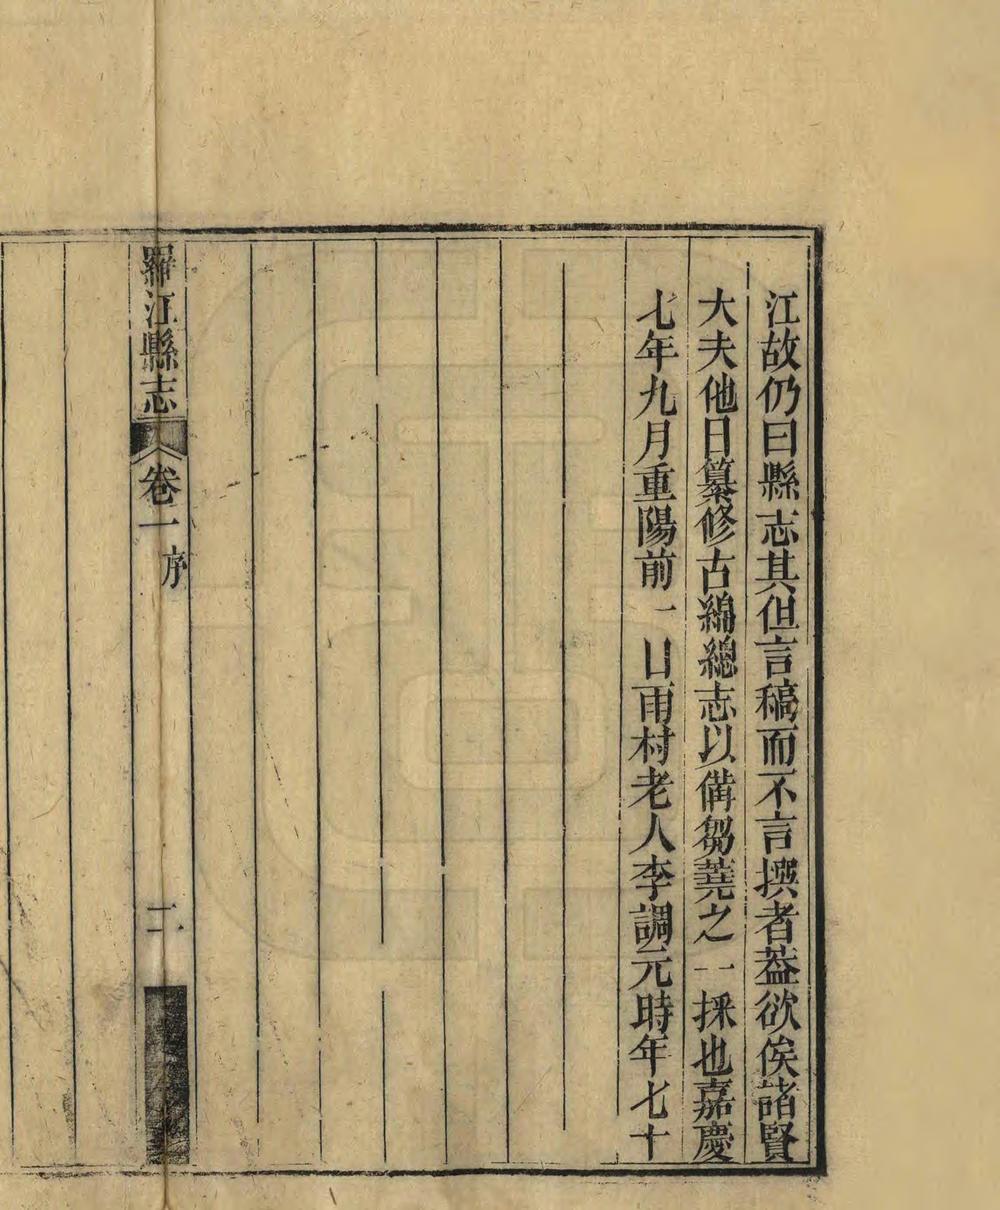 江故仍曰縣志其但言稿而不言撰者葢欲俟諸賢
大夫他日纂修古綿總志以備芻蕘之一採也嘉慶
七年九月重陽前一日雨村老人李調元時年七十
羅江縣志
卷一
序
二